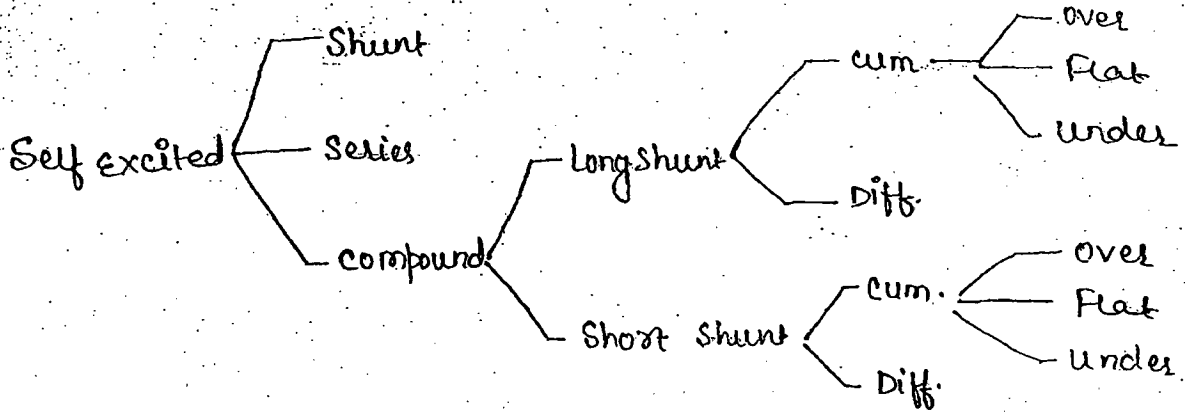 Self excited
Shunt
Series
Compound
Long Shunt
cum
over
Flat
under
Diff.
Short Shunt
cum.
over
Flat
under
Diff.